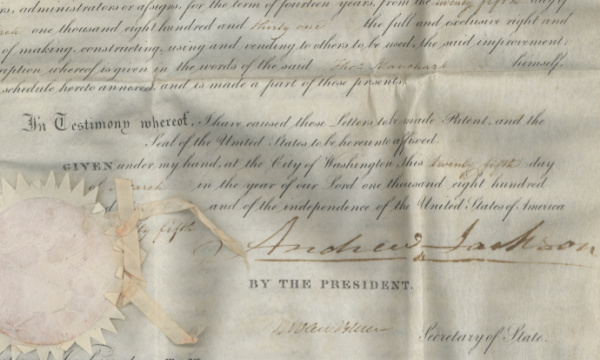 rs, administrators or assigns, for the term of fourteen years, from the twenty fifth day of
one thousand eight hundred and thirty one the full and exclusive right and
of making, constructing, using and vending to others to be used, the said improvement;
ption whereof is given in the words of the said Thos himself,
schedule hereto annexed, and is made a part of these presents.
In Testimony whereof, I have caused these Letters to be made Patent, and the
Seal of the United States to be hereunto affixed.
GIVEN under my hand, at the City of Washington, this twenty fifth day
of March in the year of our Lord one thousand eight hundred
and of the independence of the United States of America
ty fifth
Andrew Jackson
BY THE PRESIDENT.
Secretary of State.